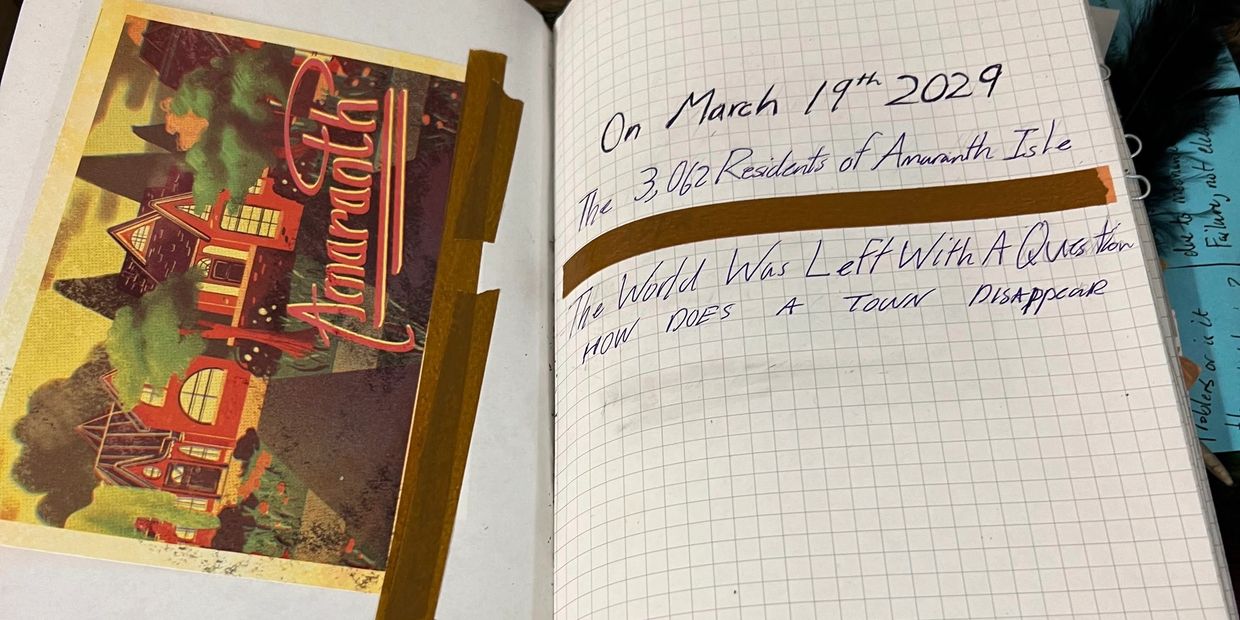 Amaranth
On March 19th 2029
The 3,062 Residents of Amaranth Isle
The World Was Left With A Question
HOW DOES A TOWN DISAPPEAR
Problems or is it
Failure, not